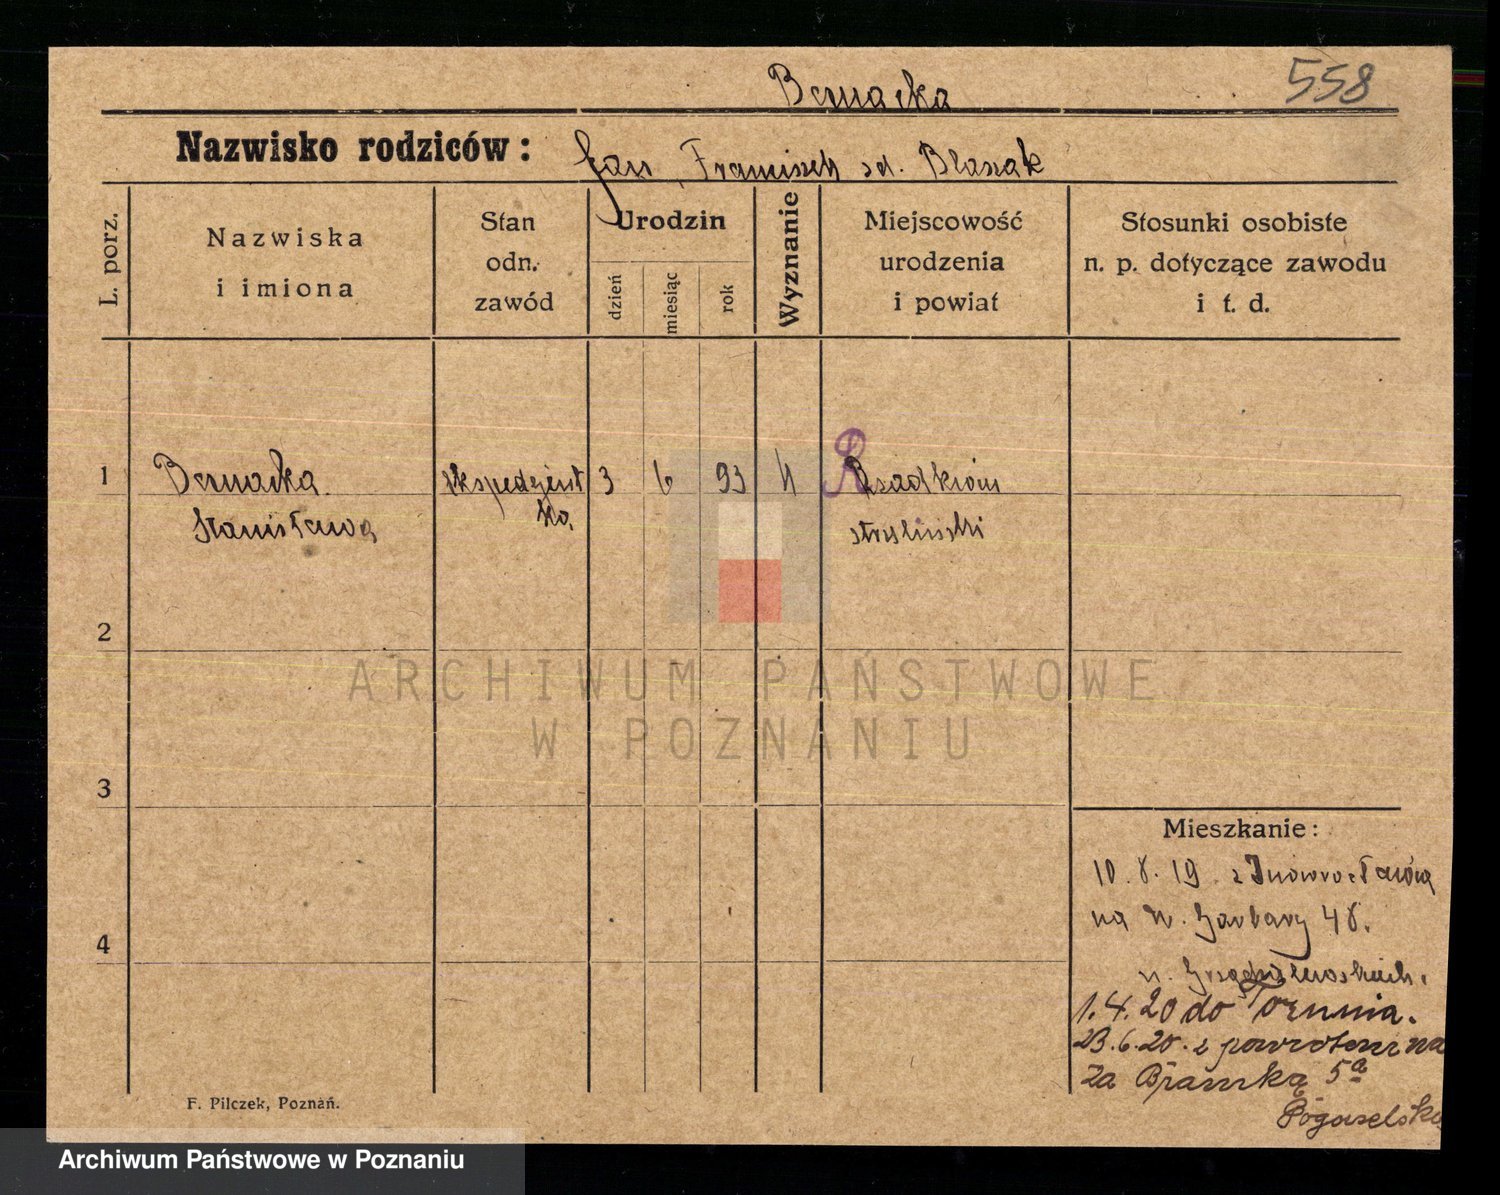 Bernacka
558
Nazwisko rodziców: Jan, Franciszek zd. Błaszak
L. porz.
Nazwiska
i imiona
Stan
odn.
zawód
Urodzin
dzień
miesiąc
rok
Wyznanie
Miejscowość
urodzenia
i powiat
Stosunki osobiste
n. p. dotyczące zawodu
i t. d.
1
Bernacka
Stanisława
ekspedjent
ka,
3 6 93
R
Rzadkwin
strzeliński
2
ARCHIWUM PAŃSTWOWE
W POZNANIU
3
Mieszkanie:
10.8.19 z Inowrocławia
na W. Garbary 48.
4
1.4.20 do Torunia.
23.6.20. z powrotem na
Za Bramką 5a
F. Pilczek, Poznań.
Archiwum Państwowe w Poznaniu